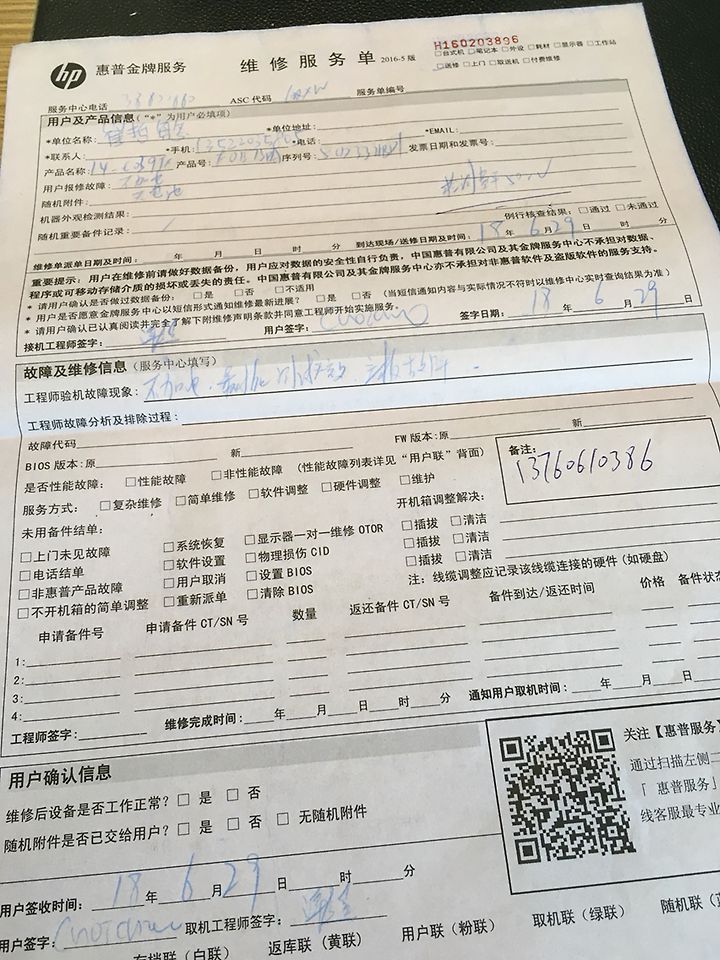 H160203896
hp 惠普金牌服务 维修服务单 2016-5 版 □台式机 □笔记本 □外设 □耗材 □显示器 □工作站
□送修 □上门 □取送机 □付费维修
服务中心电话 ASC 代码 服务单编号
用户及产品信息（“*”为用户必填项）
*单位名称: *单位地址: *EMAIL:
*联系人: *手机: *电话: 发票日期和发票号:
产品名称: 产品号: 序列号:
用户报修故障: 不加电
随机附件:
机器外观检测结果:
随机重要备件记录: 例行核查结果: □通过 □未通过
维修单派单日期及时间: 年 月 日 时 分 到达现场/送修日期及时间: 18 年 6 月 29 日 时 分
重要提示: 用户在维修前请做好数据备份, 用户应对数据的安全性自行负责, 中国惠普有限公司及其金牌服务中心不承担对数据、
程序或可移动存储介质的损坏或丢失的责任。中国惠普有限公司及其金牌服务中心亦不承担对非惠普软件及盗版软件的服务支持。
* 请用户确认是否做过数据备份: □是 □否 □不适用
* 用户是否愿意金牌服务中心以短信形式通知维修最新进展? □是 □否 (当短信通知内容与实际情况不符时以维修中心实时查询结果为准)
* 请用户确认已认真阅读并完全了解下附维修声明条款并同意工程师开始实施服务。
接机工程师签字: 用户签字: 签字日期: 18 年 6 月 29 日
故障及维修信息（服务中心填写）
工程师验机故障现象: 不加电
工程师故障分析及排除过程:
故障代码 FW 版本:原 新
BIOS 版本:原 新
是否性能故障: □性能故障 □非性能故障 (性能故障列表详见“用户联”背面) 备注:
13760610386
服务方式: □复杂维修 □简单维修 □软件调整 □硬件调整 □维护
未用备件结单: 开机箱调整解决:
□上门未见故障 □系统恢复 □显示器一对一维修 OTOR □插拔 □清洁
□电话结单 □软件设置 □物理损伤 CID □插拔 □清洁
□非惠普产品故障 □用户取消 □设置 BIOS □插拔 □清洁
□不开机箱的简单调整 □重新派单 □清除 BIOS 注: 线缆调整应记录该线缆连接的硬件 (如硬盘)
申请备件号 申请备件 CT/SN 号 数量 返还备件 CT/SN 号 备件到达/返还时间 价格 备件状态
1:
2:
3:
4:
工程师签字: 维修完成时间: 年 月 日 时 分 通知用户取机时间: 年 月 日 时 分
用户确认信息
维修后设备是否工作正常? □ 是 □ 否
随机附件是否已交给用户? □ 是 □ 否 □ 无随机附件
关注【惠普服务】
通过扫描左侧二
「惠普服务」
线客服最专业
用户签收时间: 18 年 6 月 29 日 时 分
用户签字: 取机工程师签字:
存档联（白联） 返库联（黄联） 用户联（粉联） 取机联（绿联） 随机联（